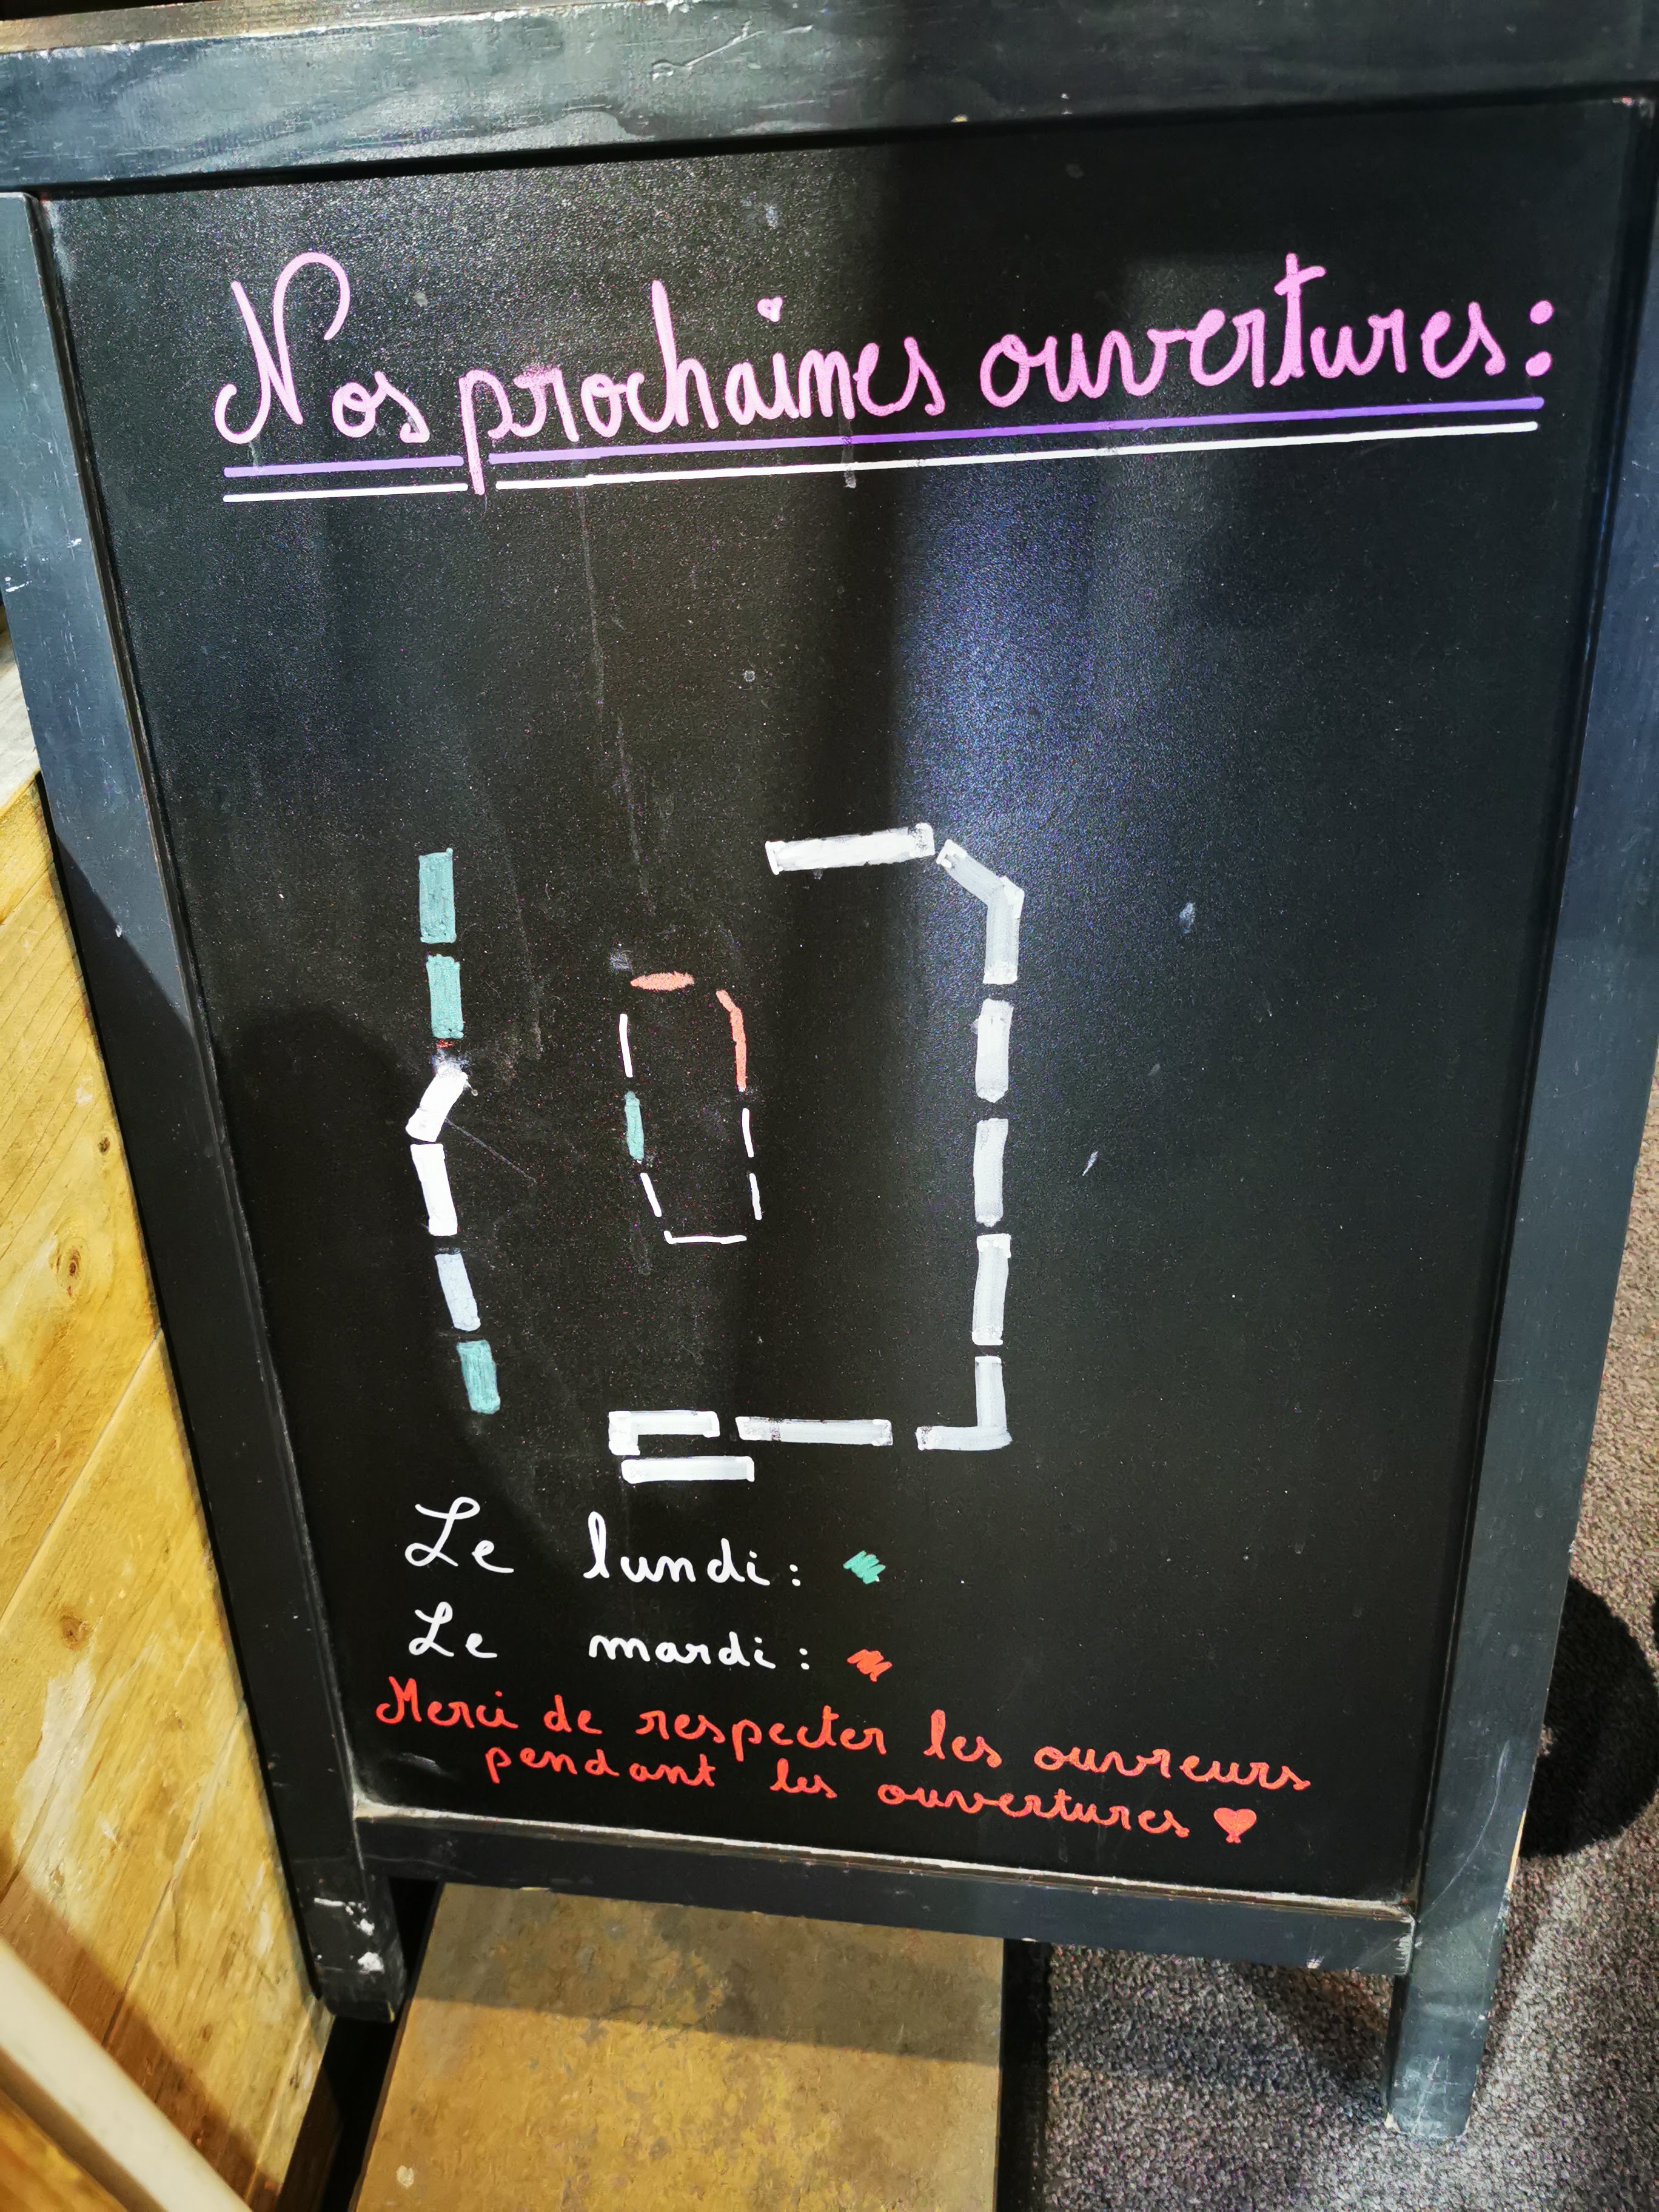 Nos prochaines ouvertures :
Le lundi :
Le mardi :
Merci de respecter les ouvreurs
pendant les ouvertures ♥